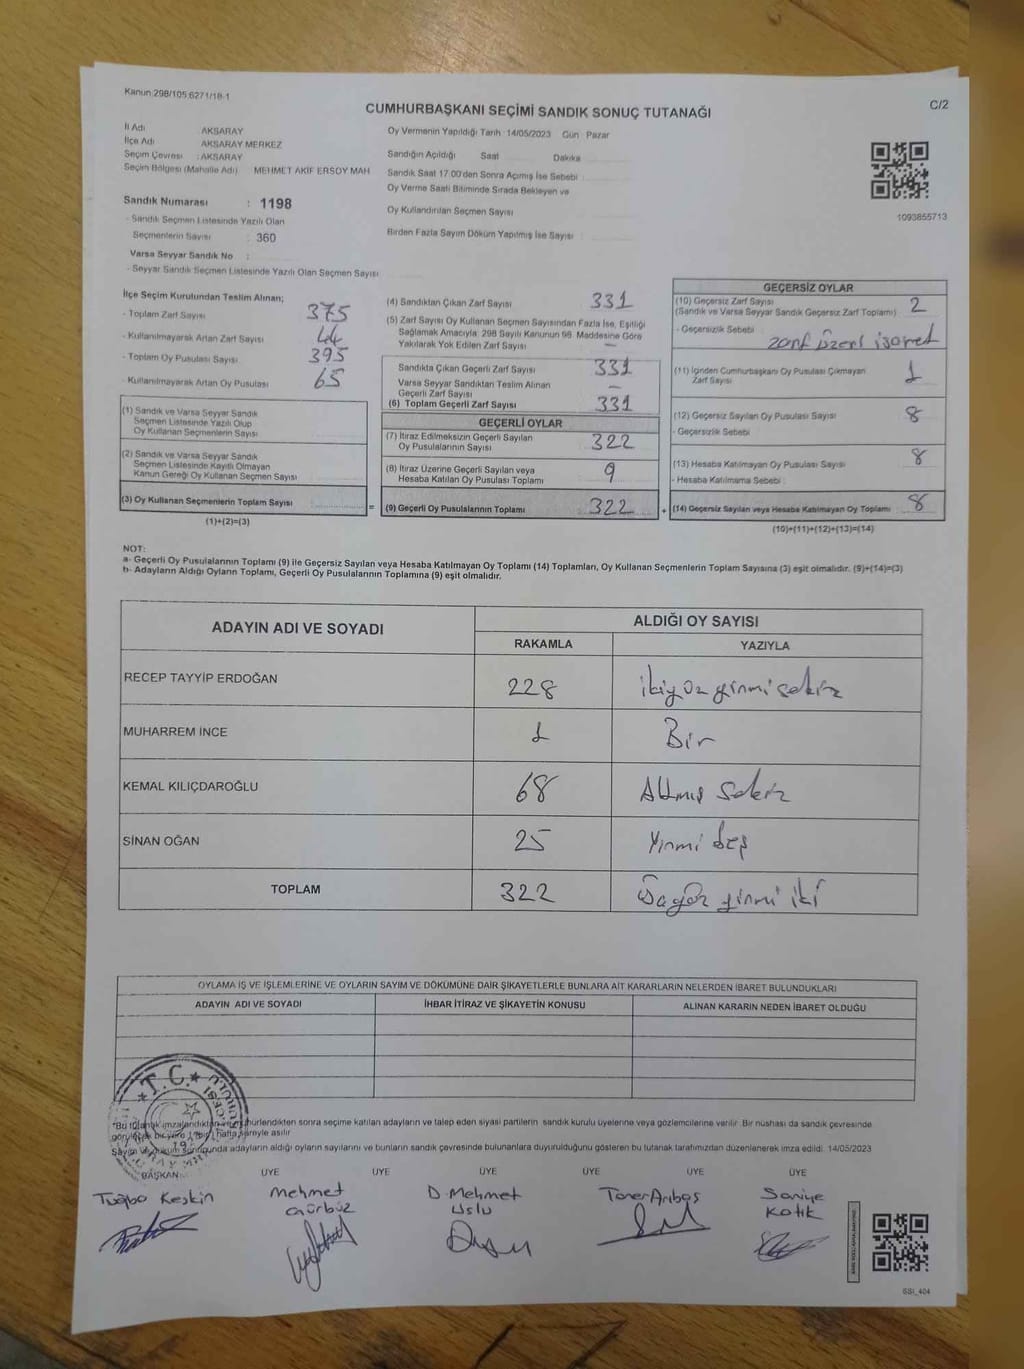 Kanun:298/105,6271/18-1
C/2
CUMHURBAŞKANI SEÇİMİ SANDIK SONUÇ TUTANAĞI
İl Adı AKSARAY
İlçe Adı AKSARAY MERKEZ
Seçim Çevresi : AKSARAY
Seçim Bölgesi (Mahalle Adı) MEHMET AKİF ERSOY MAH
Sandık Numarası : 1198
- Sandık Seçmen Listesinde Yazılı Olan
Seçmenlerin Sayısı : 360
Varsa Seyyar Sandık No :
- Seyyar Sandık Seçmen Listesinde Yazılı Olan Seçmen Sayısı
Oy Vermenin Yapıldığı Tarih :14/05/2023 Gün : Pazar
Sandığın Açıldığı Saat Dakika
Sandık Saat 17.00'den Sonra Açılmış İse Sebebi :
Oy Verme Saati Bitiminde Sırada Bekleyen ve
Oy Kullandırılan Seçmen Sayısı
Birden Fazla Sayım Döküm Yapılmış İse Sayısı :
1093855713
İlçe Seçim Kurulundan Teslim Alınan;
- Toplam Zarf Sayısı 375
- Kullanılmayarak Artan Zarf Sayısı 44
- Toplam Oy Pusulası Sayısı 395
- Kullanılmayarak Artan Oy Pusulası 65
(1) Sandık ve Varsa Seyyar Sandık
Seçmen Listesinde Yazılı Olup
Oy Kullanan Seçmenlerin Sayısı
(2) Sandık ve Varsa Seyyar Sandık
Seçmen Listesinde Kayıtlı Olmayan
Kanun Gereği Oy Kullanan Seçmen Sayısı
(3) Oy Kullanan Seçmenlerin Toplam Sayısı =
(1)+(2)=(3)
(4) Sandıktan Çıkan Zarf Sayısı 331
(5) Zarf Sayısı Oy Kullanan Seçmen Sayısından Fazla İse, Eşitliği
Sağlamak Amacıyla; 298 Sayılı Kanunun 98. Maddesine Göre
Yakılarak Yok Edilen Zarf Sayısı —
Sandıkta Çıkan Geçerli Zarf Sayısı 331
Varsa Seyyar Sandıktan Teslim Alınan
Geçerli Zarf Sayısı —
(6) Toplam Geçerli Zarf Sayısı 331
GEÇERLİ OYLAR
(7) İtiraz Edilmeksizin Geçerli Sayılan
Oy Pusulalarının Sayısı 322
(8) İtiraz Üzerine Geçerli Sayılan veya
Hesaba Katılan Oy Pusulası Toplamı 9
(9) Geçerli Oy Pusulalarının Toplamı 322 +
GEÇERSİZ OYLAR
(10) Geçersiz Zarf Sayısı 2
(Sandık ve Varsa Seyyar Sandık Geçersiz Zarf Toplamı)
- Geçersizlik Sebebi : zarf üzeri işaret
(11) İçinden Cumhurbaşkanı Oy Pusulası Çıkmayan
Zarf Sayısı 1
(12) Geçersiz Sayılan Oy Pusulası Sayısı 8
- Geçersizlik Sebebi
(13) Hesaba Katılmayan Oy Pusulası Sayısı 8
- Hesaba Katılmama Sebebi :
(14) Geçersiz Sayılan veya Hesaba Katılmayan Oy Toplamı 8
(10)+(11)+(12)+(13)=(14)
NOT:
a- Geçerli Oy Pusulalarının Toplamı (9) ile Geçersiz Sayılan veya Hesaba Katılmayan Oy Toplamı (14) Toplamları, Oy Kullanan Seçmenlerin Toplam Sayısına (3) eşit olmalıdır. (9)+(14)=(3)
b- Adayların Aldığı Oyların Toplamı, Geçerli Oy Pusulalarının Toplamına (9) eşit olmalıdır.
ADAYIN ADI VE SOYADI ALDIĞI OY SAYISI
RAKAMLA YAZIYLA
RECEP TAYYİP ERDOĞAN 228 ikiyüz yirmi sekiz
MUHARREM İNCE 1 Bir
KEMAL KILIÇDAROĞLU 68 Altmış sekiz
SİNAN OĞAN 25 Yirmi beş
TOPLAM 322 Üçyüz yirmi iki
OYLAMA İŞ VE İŞLEMLERİNE VE OYLARIN SAYIM VE DÖKÜMÜNE DAİR ŞİKAYETLERLE BUNLARA AİT KARARLARIN NELERDEN İBARET BULUNDUKLARI
ADAYIN ADI VE SOYADI İHBAR İTİRAZ VE ŞİKAYETİN KONUSU ALINAN KARARIN NEDEN İBARET OLDUĞU
T.C.
*Bu tutanak imzalandıktan ve mühürlendikten sonra seçime katılan adayların ve talep eden siyasi partilerin sandık kurulu üyelerine veya gözlemcilerine verilir. Bir nüshası da sandık çevresinde
görülecek bir yere 1 (bir) hafta süreyle asılır
Sayım ve döküm sonunda adayların aldığı oyların sayılarını ve bunların sandık çevresinde bulunanlara duyurulduğunu gösteren bu tutanak tarafımızdan düzenlenerek imza edildi. 14/05/2023
BAŞKAN ÜYE ÜYE ÜYE ÜYE ÜYE ÜYE
Tuğba Keskin Mehmet Gürbüz D. Mehmet Uslu Taner Arıbaş Saniye Katık
SSI_404